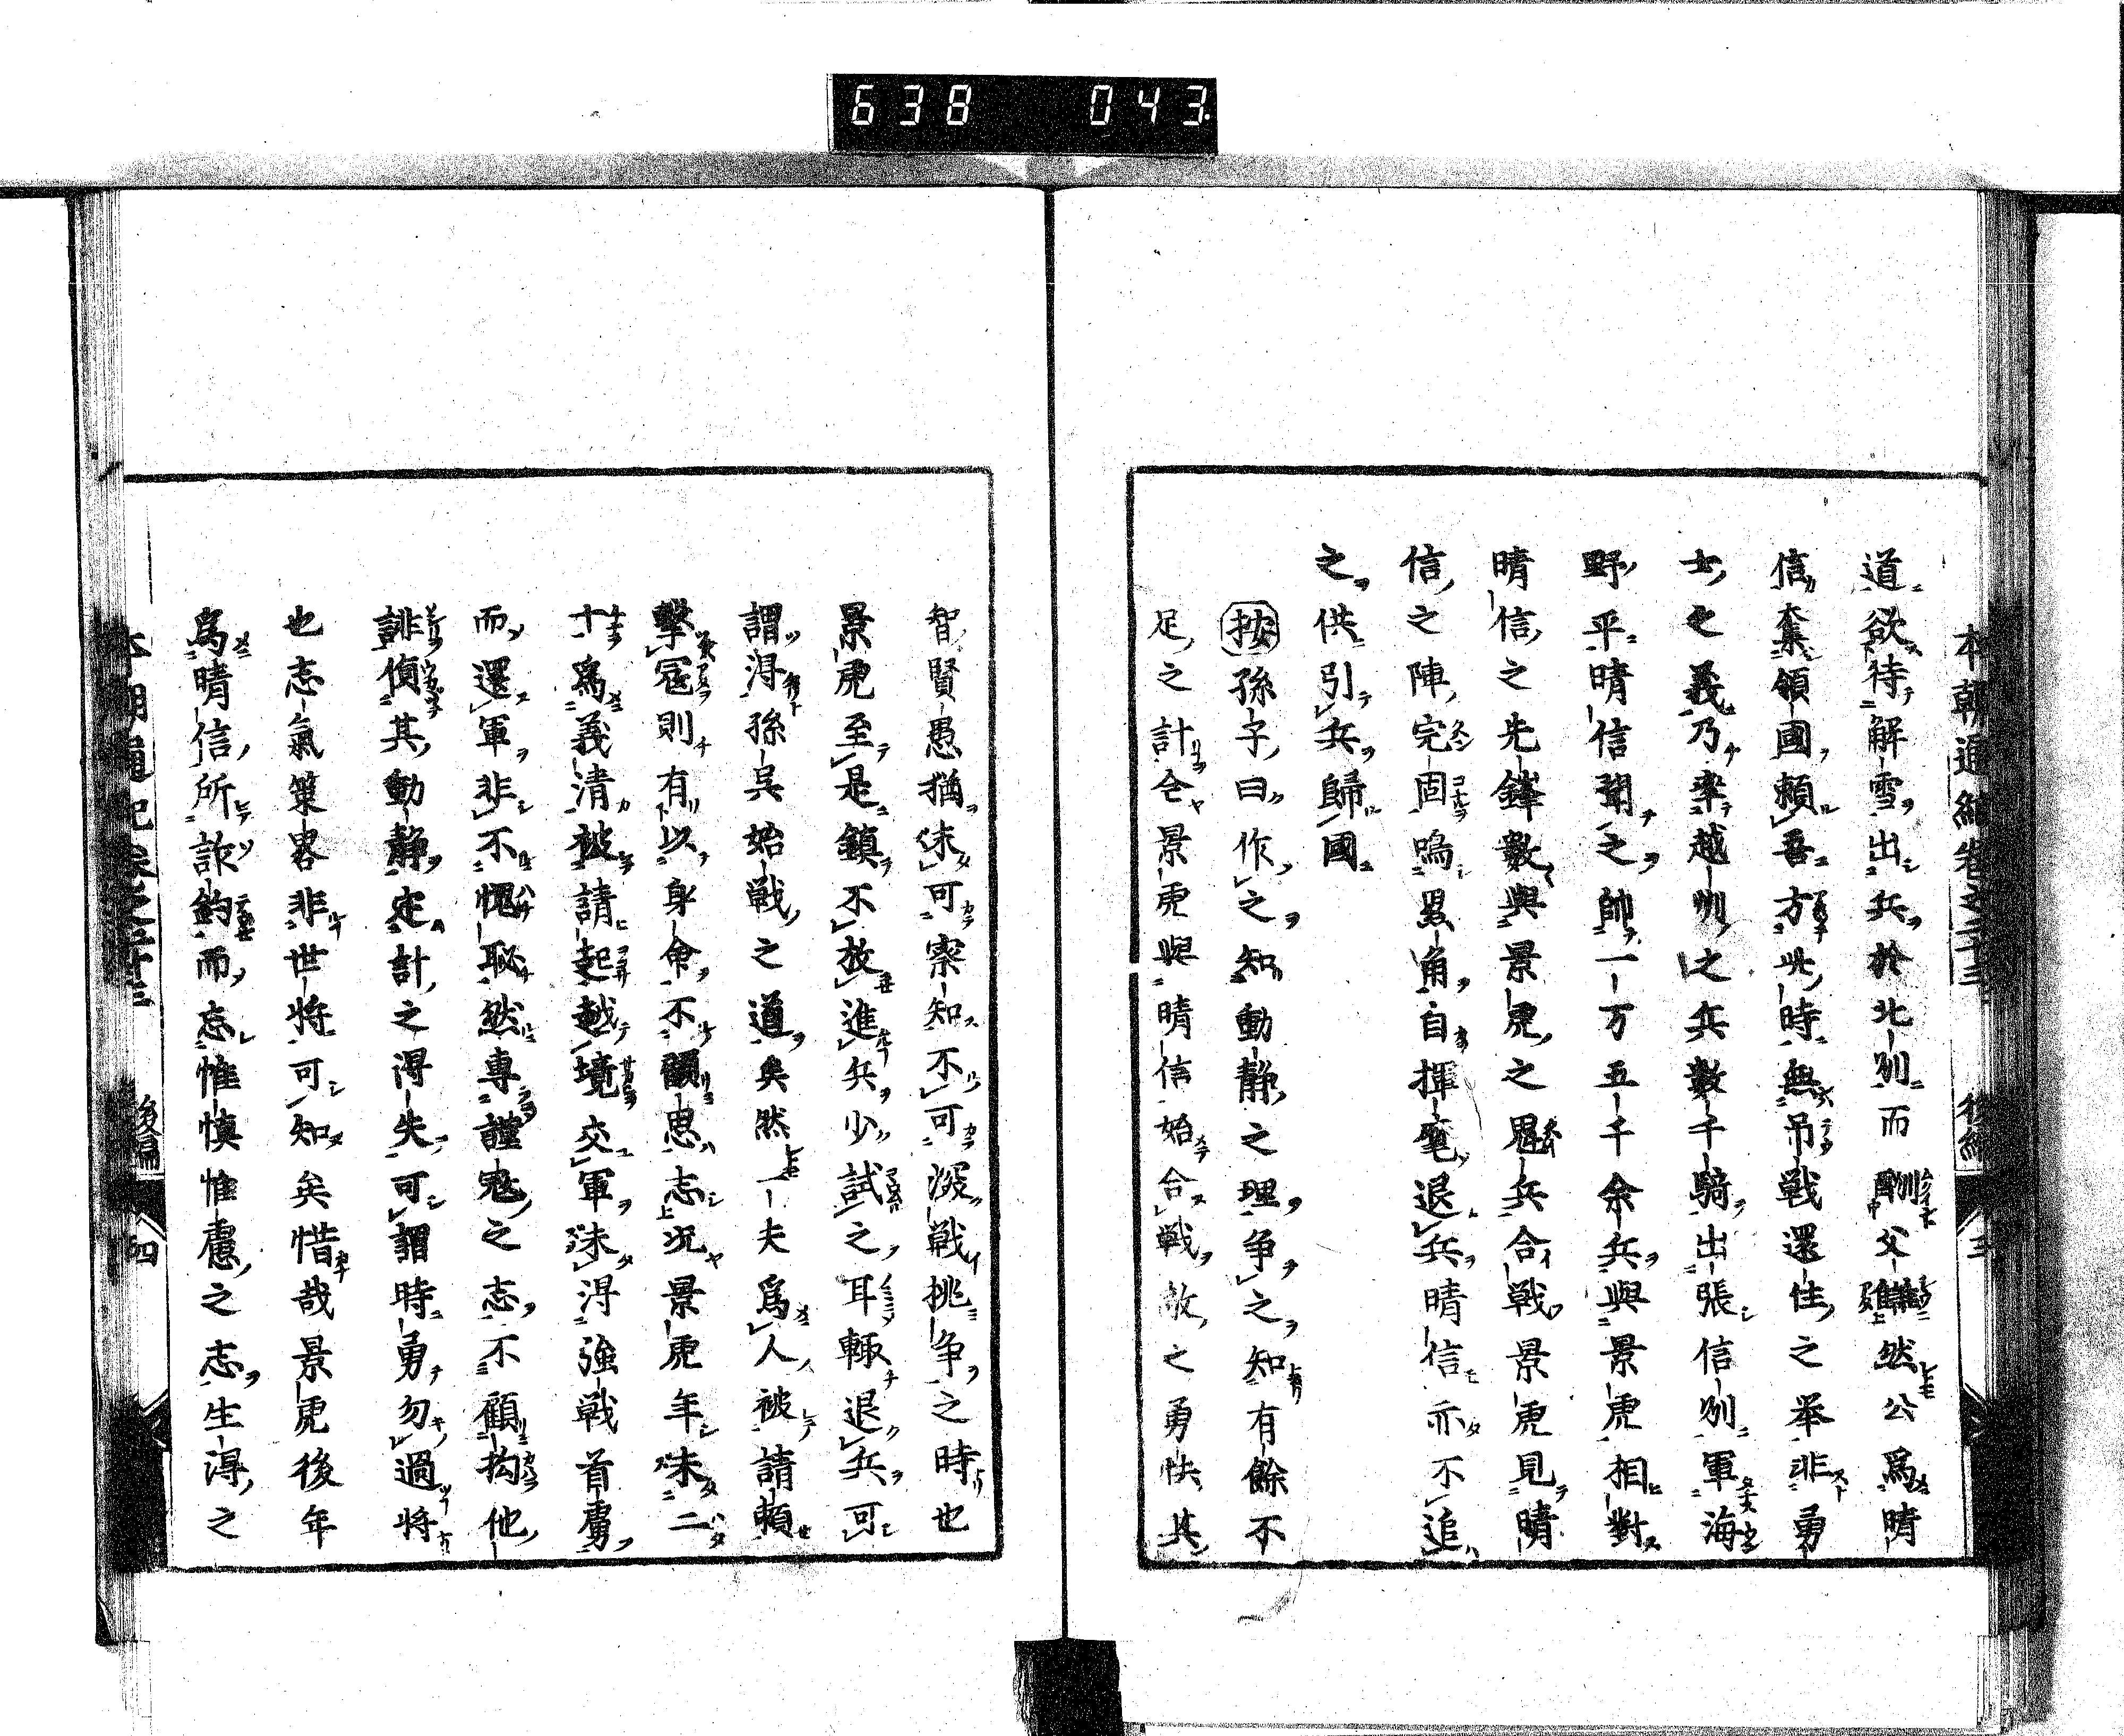 638 043
本朝通紀巻之二十三 後編 三
道欲待解雪出兵於北刕而刎父讎然公爲晴
信奪領國頼吾方此時無吊戦還住之挙非勇
士之義乃率越刕之兵數千騎出張信刕軍海
野平晴信聞之帥一万五千余兵與景虎相對
晴信之先鋒數與景虎之兵合戦景虎見晴
信之陣完固鳴畳角自揮麾退兵晴信亦不追
之供引兵歸國
按孫子曰作之知動静之理争之知有餘不
足之計仝景虎與晴信始合戦敵之勇怏其
智賢愚猶未可察知不可深戦挑争之時也
景虎至是鎮不放進兵少試之耳輙退兵可
謂得孫呉始戦之道矣然一夫爲人被請頼
撃冦則有以身命不顧思志况景虎年未二
十爲義清被請起越境交軍未得強戦首虜
而還軍非不愧恥然專謹冦之志不顧拘他
誹偵其動静定計之得失可謂時勇勿過将
也志氣策畧非世将可知矣惜哉景虎後年
爲晴信所詐釣而忘惟慎惟慮之志生得之
本朝通紀巻之二十三 後編 四